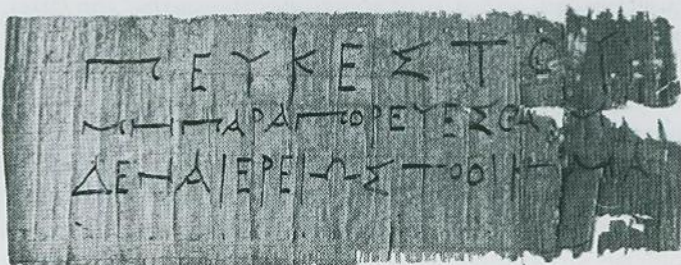 ΠΕΥΚΕΣΤΟΥ
ΜΗΠΑΡΑΠΟΡΕΥΕΣΘΑΙΜΗ
ΔΕΝΑΙΕΡΕΙΩΣΤΟΟΙΚΗΜΑ